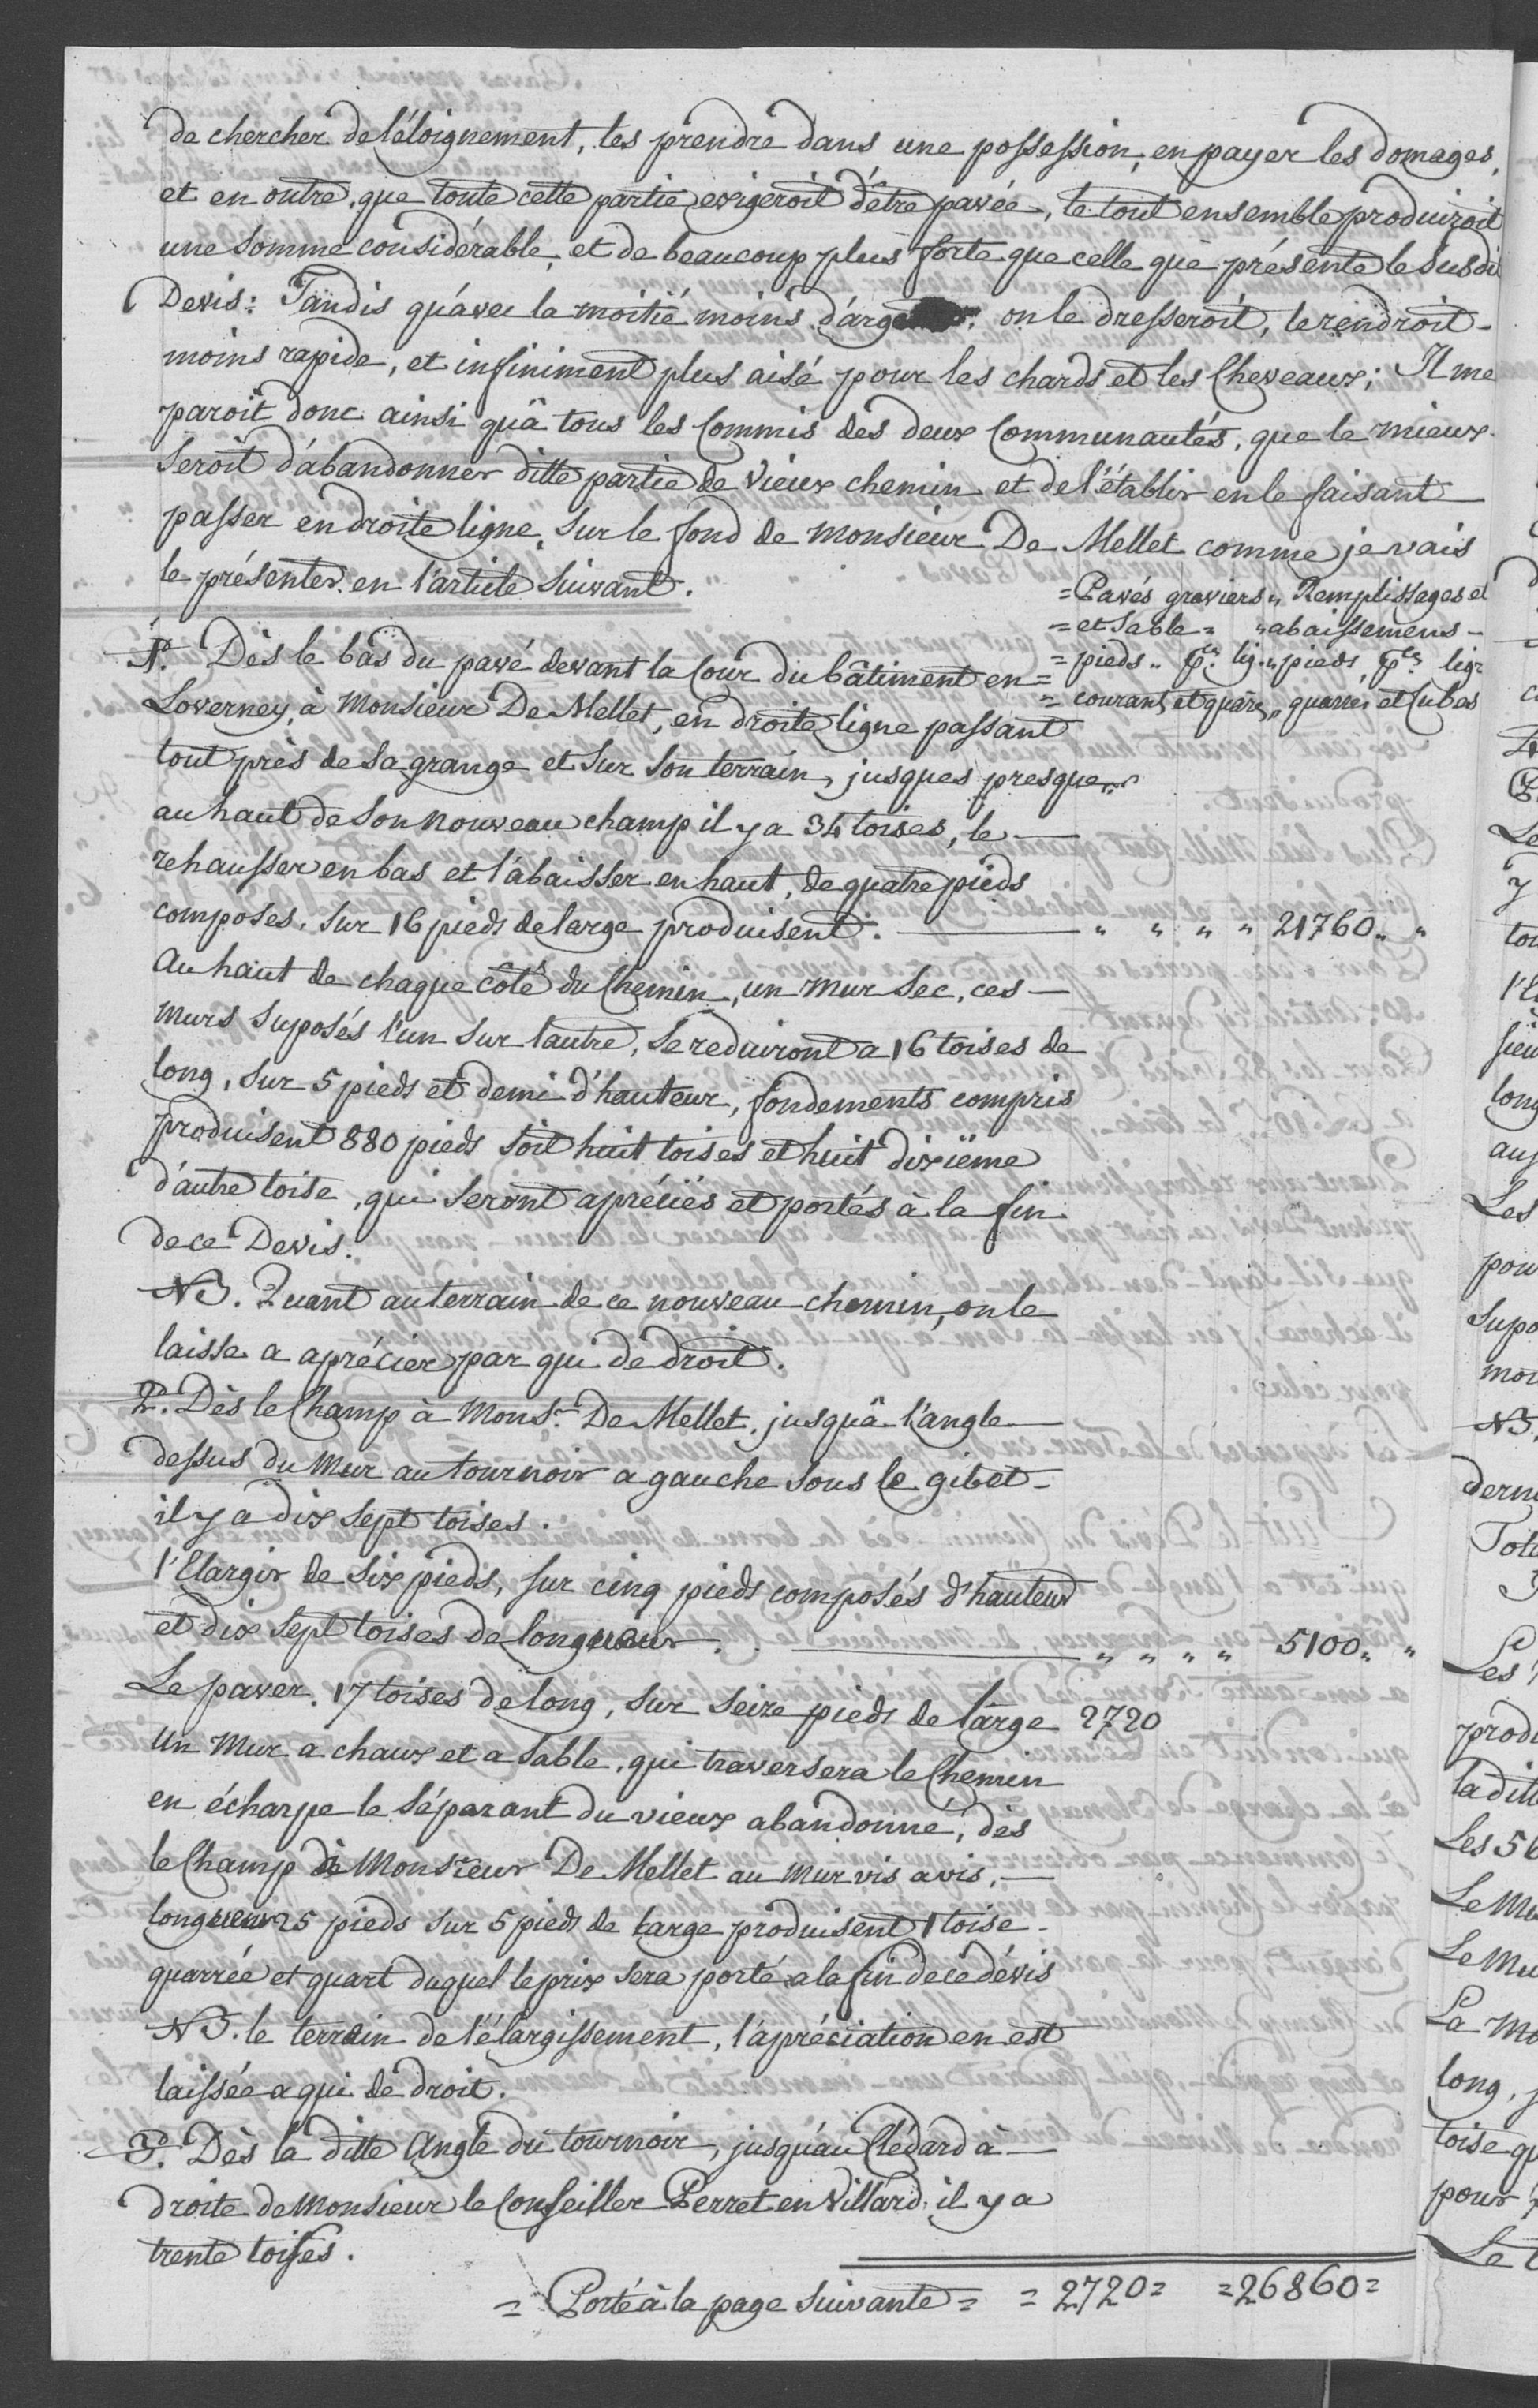 de chercher de l'éloignement, les prendre dans une possession, en payer les domages,
et en outre, que toute cette partie exigeroit d'être pavée, le tout ensemble produiroit
une somme considérable, et de beaucoup plus forte que celle que présente le susdit
Devis: Tandis qu'avec la moitié moins d'arg on le dresseroit, le rendroit -
moins rapide, et infiniment plus aisé pour les chards et les Cheveaux; Il me
paroit donc ainsi qu'à tous les Commis des deux Communautés, que le mieux
seroit d'abandonner ditte partie de vieux chemin et de l'établir en le faisant
passer en droite ligne, sur le fond de Monsieur De Mellet comme je vais
le présenter en l'article suivant.
= Pavés graviers „ Remplissages et
= et Sable = „ abaissemens -
= pieds „ pces lig. „ pieds, pces lig.
= courants et quarés „ quarrés et Cubes
1°. Dès le bas du pavé devant la Cour du bâtiment en =
Loverney, à Monsieur De Mellet, en droite ligne passant
tout près de sa grange et sur son terrain, jusques presque
au haut de son nouveau champ il y a 34 toises, le —
rehausser en bas et l'abaisser en haut, de quatre pieds
composes, sur 16 pieds de large produisent. — „ „ „ „ 21760 „ „
Au haut de chaque côté du Chemin, un mur sec, ces —
murs suposés l'un sur l'autre, se reduiront a 16 toises de
long, sur 5 pieds et demi d'hauteur, fondements compris
produisent 880 pieds soit huit toises et huit dixiëme
d'autre toise, qui seront apréciés et portés à la fin
de ce Devis.
NB. Quant au terrain de ce nouveau chemin, on le
laisse a aprécier par qui de droit.
2°. Dès le Champ à Monsr. De Mellet, jusqu'à l'angle
dessus du mur au tournoir a gauche sous le gibet -
il y a dix sept toises.
l'Elargir de six pieds, sur cinq pieds composés d'hauteur
et dix sept toises de longueur. — „ „ „ „ 5100 „ „
Le paver, 17 toises de long, sur seize pieds de large 2720
Un Mur a chaux et a sable, qui traversera le Chemin
en écharpe le séparant du vieux abandonné, dès
le Champ à Monsieur De Mellet au mur vis a vis, —
longueur 25 pieds sur 5 pieds de large produisent 1 toise -
quarrée et quart duquel le prix sera porté a la fin de ce dévis
NB. le terrain de l'élargissement, l'apréciation en est
laissée a qui de droit.
3°. Dès la ditte Angle du tournoir, jusqu'au Clédard à —
droite de Monsieur le Conseiller Perret en Villard, il y a
trente toises.
= Porté à la page suivante = = 2720 = = 26860 =